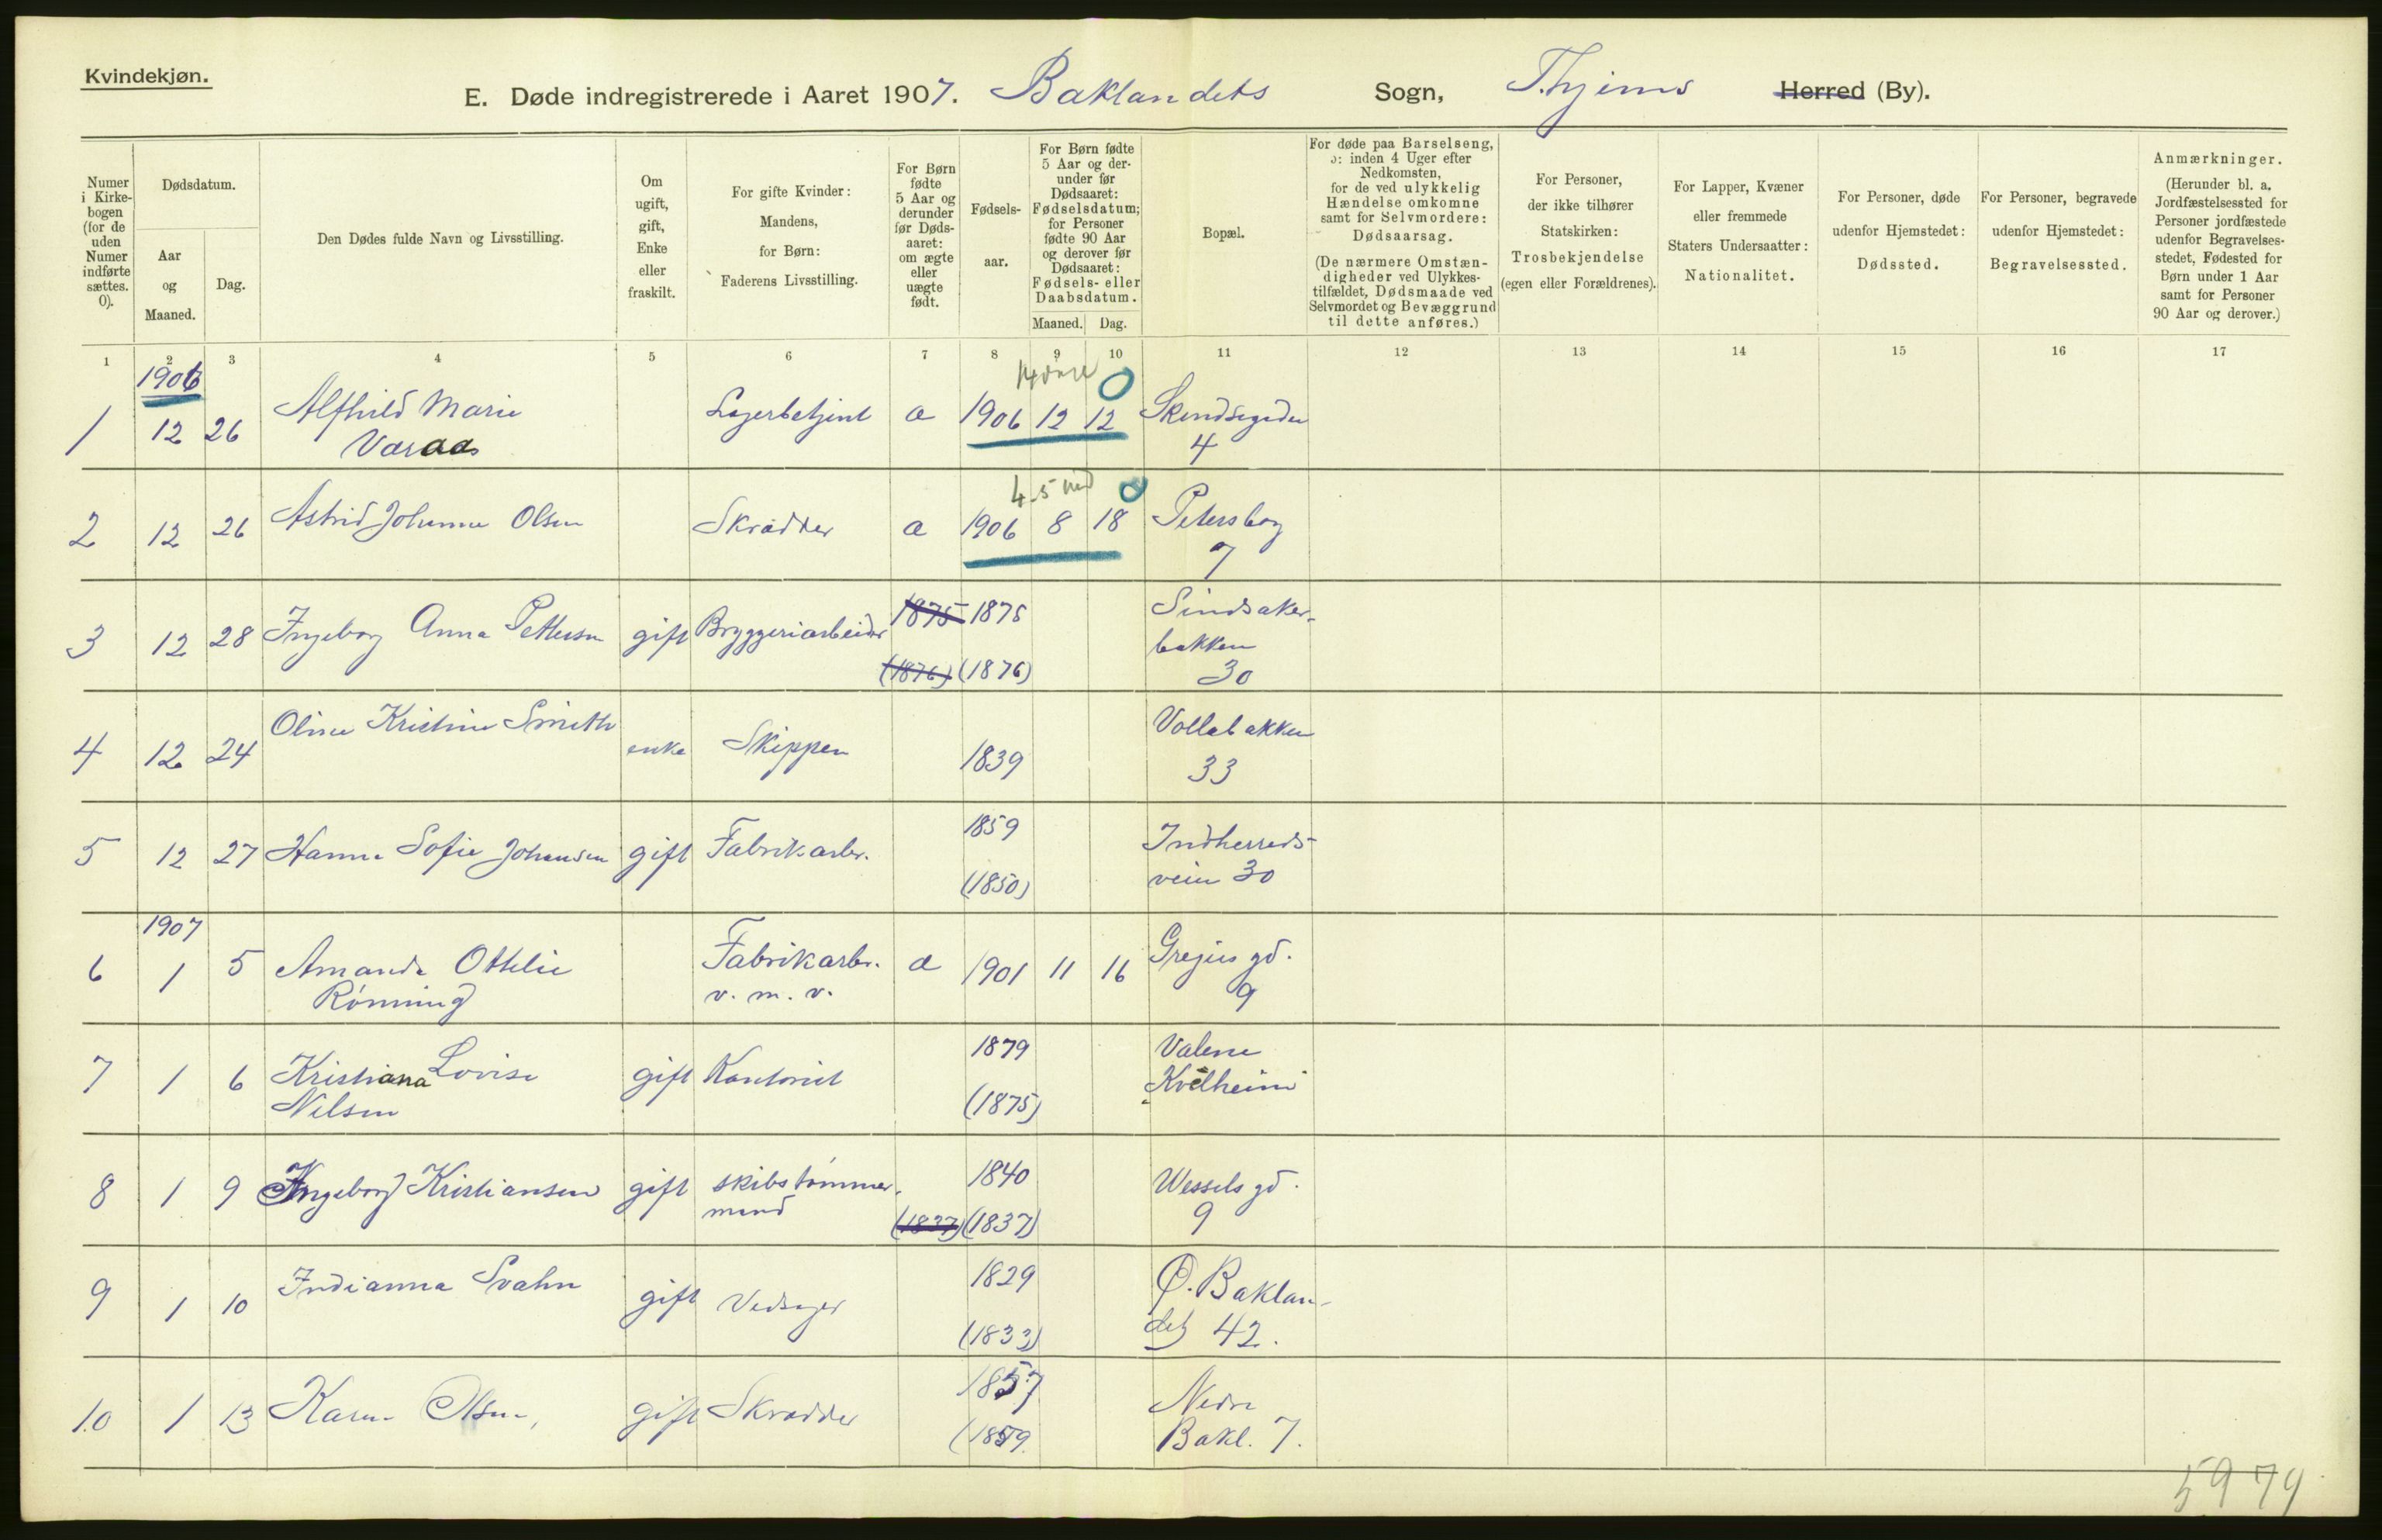 Kvindekjøn.
E. Døde indregistrerede i Aaret 1907. Baklandets Sogn, Thjems Herred (By).
Numer i Kirkebogen (for de uden Numer indførte sættes. 0).
Dødsdatum.
Aar og Maaned.
Dag.
Den Dødes fulde Navn og Livsstilling.
Om ugift, gift, Enke eller fraskilt.
For gifte Kvinder: Mandens, for Børn: Faderens Livsstilling.
For Børn fødte 5 Aar og derunder før Dødsaaret: om ægte eller uægte født.
Fødselsaar.
For Børn fødte 5 Aar og derunder før Dødsaaret: Fødselsdatum; for Personer fødte 90 Aar og derover før Dødsaaret: Fødsels- eller Daabsdatum.
Maaned. Dag.
Bopæl.
For døde paa Barselseng, ɔ: inden 4 Uger efter Nedkomsten, for de ved ulykkelig Hændelse omkomne samt for Selvmordere: Dødsaarsag.
(De nærmere Omstændigheder ved Ulykkestilfældet, Dødsmaade ved Selvmordet og Bevæggrund til dette anføres.)
For Personer, der ikke tilhører Statskirken: Trosbekjendelse (egen eller Forældrenes).
For Lapper, Kvæner eller fremmede Staters Undersaatter: Nationalitet.
For Personer, døde udenfor Hjemstedet: Dødssted.
For Personer, begravede udenfor Hjemstedet: Begravelsessted.
Anmærkninger.
(Herunder bl. a. Jordfæstelsessted for Personer jordfæstede udenfor Begravelsesstedet, Fødested for Børn under 1 Aar samt for Personer 90 Aar og derover.)
1 2 3 4 5 6 7 8 9 10 11 12 13 14 15 16 17
1906
0
1 12 26 Alfhild Marie Lagerbetjent a 1906 12 12
Varaas 4
4-5 md 0
2 12 26 Astrid Johanne Olsen Skrädder a 1906 8 18 Petersborg
7
1875 1875 Sindsaker-
3 12 28 Ingeborg Anna Pettersen gift Bryggeriarbeider bakken
(1876) (1876) 30
Oline Kristine Smith Vollabakken
4 12 24 enke Skipper 1839 33
1859
5 12 27 Hanna Sofie Johansen gift Fabrikarb. Indherreds-
(1850) veien 30
1907
6 1 5 Amanda Ottelie Fabrikarb. a 1901 11 16 gd.
Rönning v. m. v. 9
1879
7 1 6 Kristiana Lovise gift Kontorist Kvelheim
Nilsen (1875)
1840
8 1 9 Ingeborg Kristiansen gift skibstömmer- Wessels gd.
mand (1837) (1837) 9
1829
9 1 10 Indianna Svahn gift Vedsager Ø. Baklan-
(1833) det 42.
1857
10 1 13 Karen Olsen, gift Skrädder Nedre
(1859 Bakl. 7.
5979